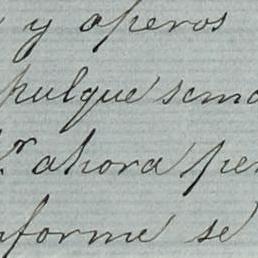 y aperos
pulque sema
r ahora per
nforme se